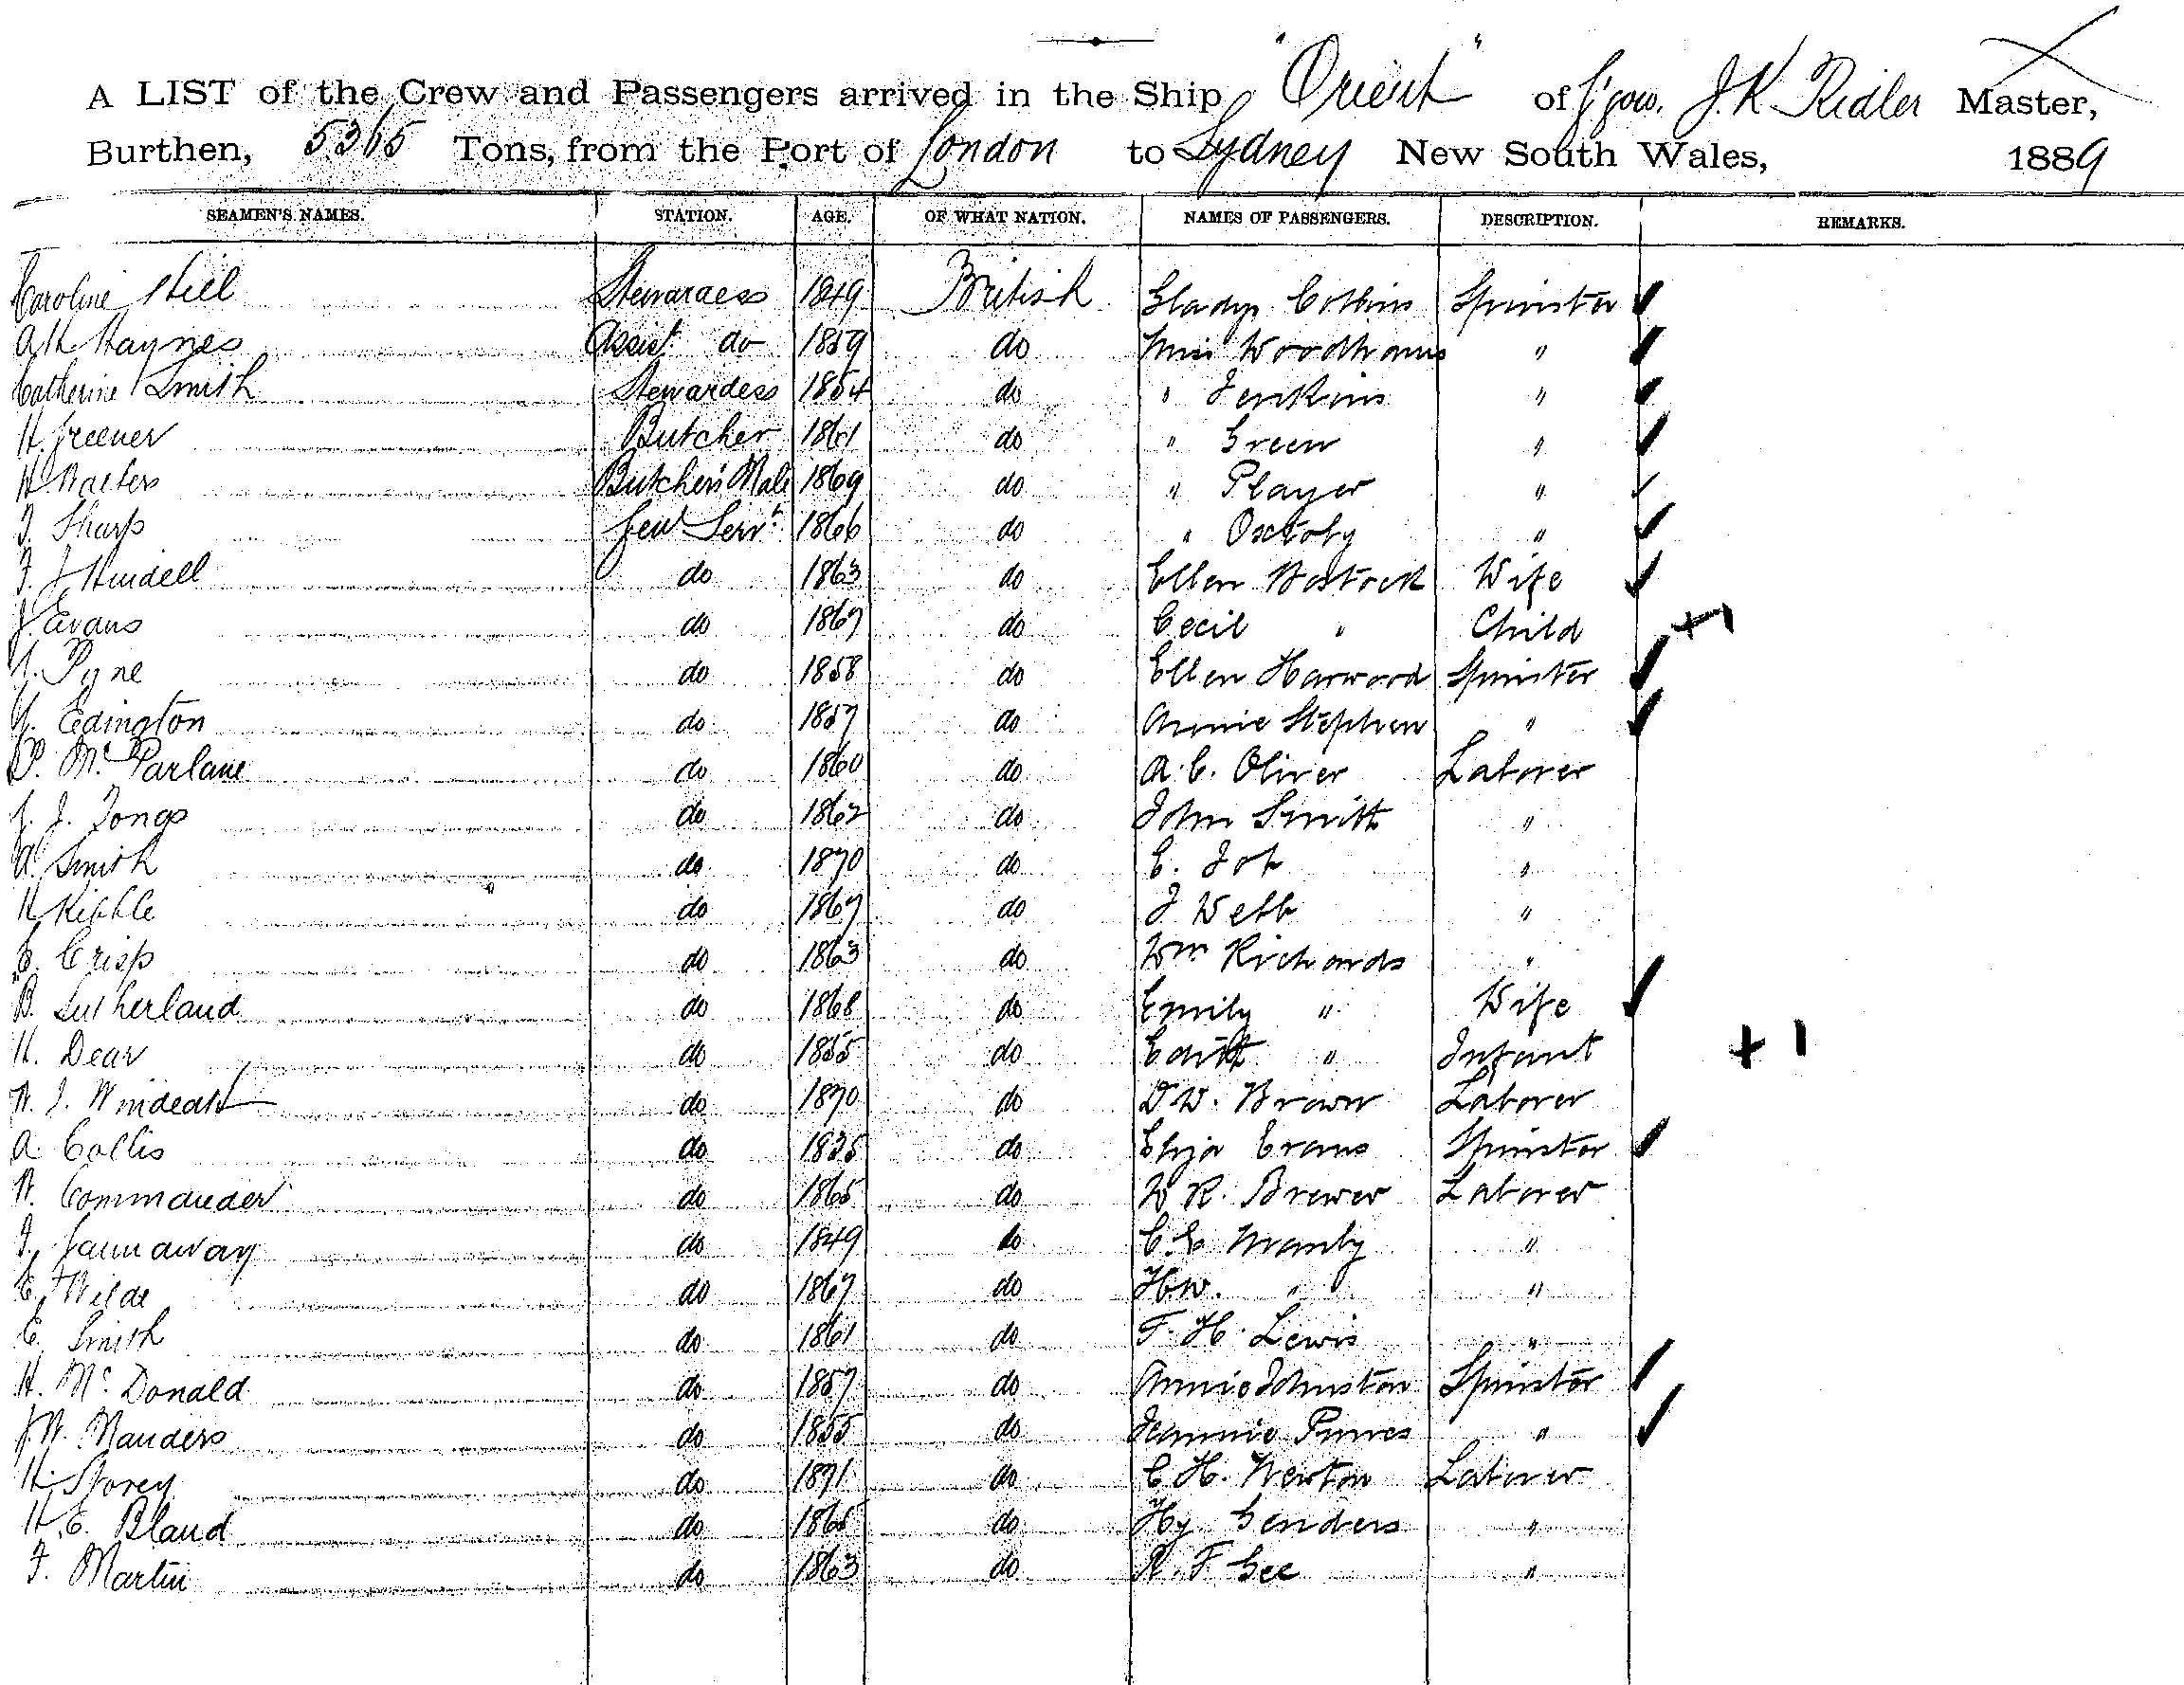 A LIST of the Crew and Passengers arrived in the Ship "Orient" of G'gow. J.K Ridler Master,
Burthen, 5365 Tons, from the Port of London to Sydney New South Wales, 1889
SEAMEN'S NAMES. STATION. AGE. OF WHAT NATION. NAMES OF PASSENGERS. DESCRIPTION. REMARKS.
Caroline Hill Stewardess 1849 British Gladys Collins Spinster
A.H Haynes Assist do 1859 do Miss Woodhams "
Catherine Smith Stewardess 1854 do " Jenkins "
H. Greener Butcher 1861 do " Green "
H. Walters Butchers Mate 1869 do " Player "
J. Sharp Genl Servt 1866 do " Oxtoby "
F. J. Hindell do 1863 do Ellen Bostock Wife
J. Evans do 1867 do Cecil " Child +1
Pyne do 1858 do Ellen Harwood Spinster
Edington do 1857 do Annie Stephen "
P. McParlane do 1860 do A. C. Oliver Laborer
J. Tongs do 1862 do John Smith "
A. Smith do 1870 do C. Job "
H Kibble do 1867 do J Webb "
E. Crisp do 1863 do Wm Richards "
B. Sutherland do 1868 do Emily " Wife
H. Dear do 1855 do Edith " Infant + 1
W. J. Windeatt do 1870 do D W. Brown Laborer
A. Collis do 1835 do Eliza Evans Spinster
W. Commander do 1865 do W R. Brewer Laborer
J. Jannaway do 1849 do C. E Manly "
C. Wilde do 1867 do H W. " "
E. Smith do 1861 do F. H. Lewis "
H. Mc Donald do 1857 do Annie Johnston Spinster
J.W. Manders do 1855 do Jeannie Purves "
H. Storey do 1871 do C H. Newton Laborer
H. E. Bland do 1865 do Hy Genders "
F. Martin do 1863 do R. F Gee "